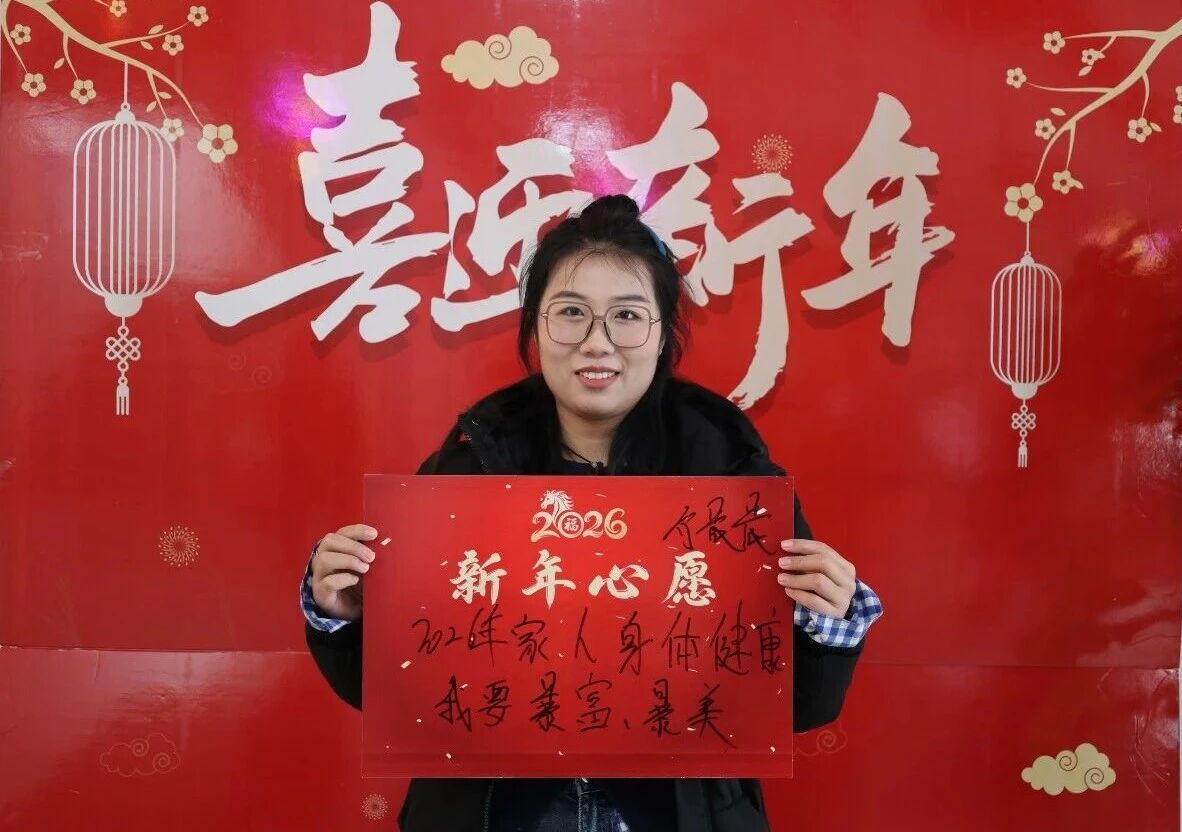 喜迎新年
2026
福
新年心愿
2026年家人身体健康
我要暴富、暴美